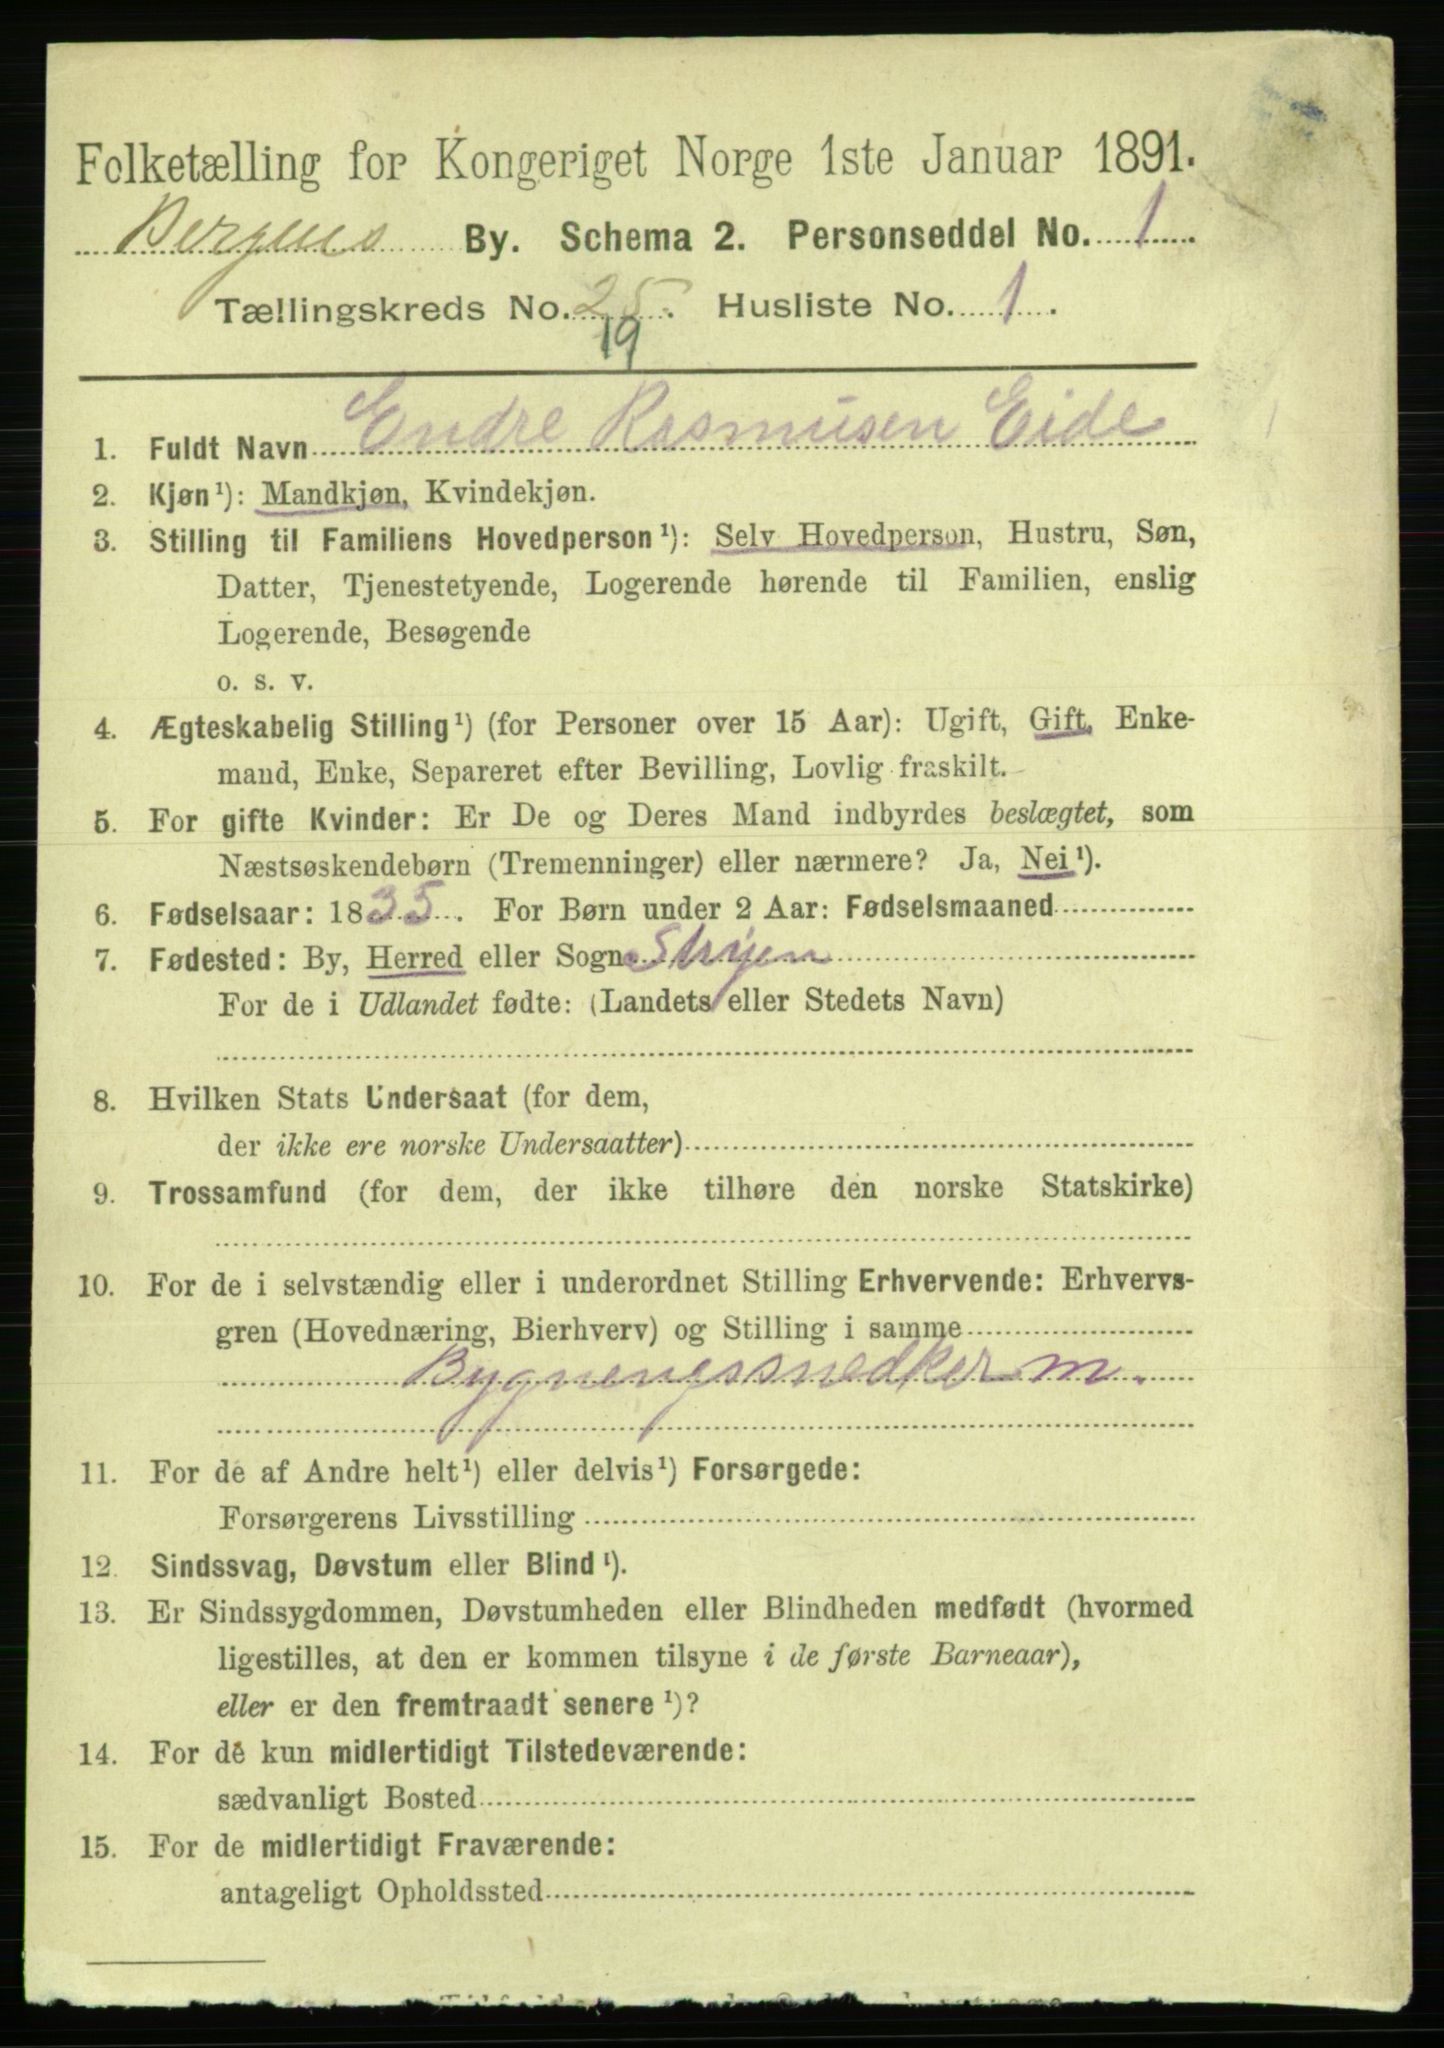 Folketælling for Kongeriget Norge 1ste Januar 1891.
Bergens By. Schema 2. Personseddel No. 1
Tællingskreds No. 25. Husliste No. 1.
19
1. Fuldt Navn Endre Rasmusen Eide
2. Kjøn¹): Mandkjøn, Kvindekjøn.
3. Stilling til Familiens Hovedperson¹): Selv Hovedperson, Hustru, Søn,
Datter, Tjenestetyende, Logerende hørende til Familien, enslig
Logerende, Besøgende
o. s. v.
4. Ægteskabelig Stilling¹) (for Personer over 15 Aar): Ugift, Gift, Enke-
mand, Enke, Separeret efter Bevilling, Lovlig fraskilt.
5. For gifte Kvinder: Er De og Deres Mand indbyrdes beslægtet, som
Næstsøskendebørn (Tremenninger) eller nærmere? Ja, Nei¹).
6. Fødselsaar: 1835. For Børn under 2 Aar: Fødselsmaaned
7. Fødested: By, Herred eller Sogn Stryen
For de i Udlandet fødte: (Landets eller Stedets Navn)
8. Hvilken Stats Undersaat (for dem,
der ikke ere norske Undersaatter)
9. Trossamfund (for dem, der ikke tilhøre den norske Statskirke)
10. For de i selvstændig eller i underordnet Stilling Erhvervende: Erhvervs-
gren (Hovednæring, Bierhverv) og Stilling i samme
Bygnengssnedker m.
11. For de af Andre helt¹) eller delvis¹) Forsørgede:
Forsørgerens Livsstilling
12. Sindssvag, Døvstum eller Blind¹).
13. Er Sindssygdommen, Døvstumheden eller Blindheden medfødt (hvormed
ligestilles, at den er kommen tilsyne i de første Barneaar),
eller er den fremtraadt senere¹)?
14. For de kun midlertidigt Tilstedeværende:
sædvanligt Bosted
15. For de midlertidigt Fraværende:
antageligt Opholdssted